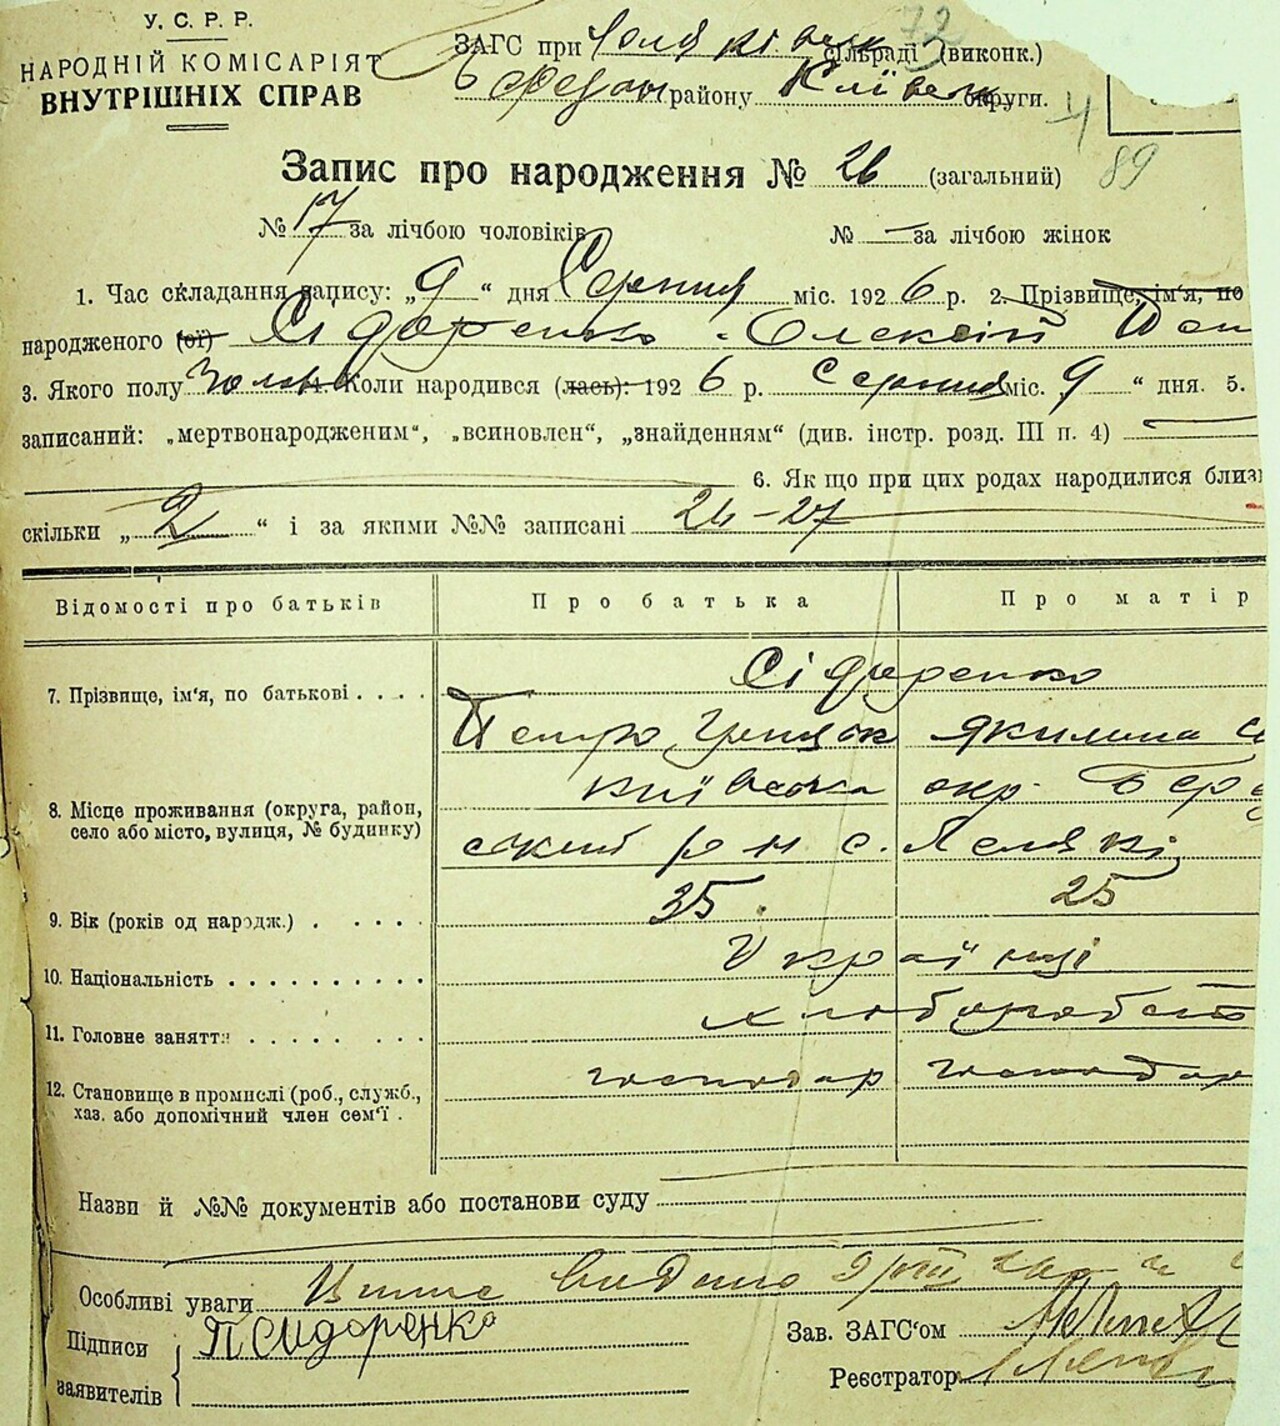 У. С. Р. Р.
НАРОДНІЙ КОМІСАРІЯТ
ВНУТРІШНІХ СПРАВ
72
ЗАГС при сільраді (виконк.)
району Київськ округи.
4
89
Запис про народження № 26 (загальний)
№ 17 за лічбою чоловіків № — за лічбою жінок
1. Час складання запису: „ 9 “ дня Серпня міс. 192 6 р. 2. Прізвище, ім'я, по
народженого (ої) Сідоренко Олексій Пет
3. Якого полу 4. Коли народився (лась): 192 6 р. Серпня міс. 9 “ дня. 5.
записаний: „мертвонародженим“, „всиновлен“, „знайденням“ (див. інстр. розд. III п. 4)
6. Як що при цих родах народилися близ
скільки „ 2 “ і за якими №№ записані 26-27
Відомості про батьків Про батька Про матір
7. Прізвище, ім'я, по батькові . . . . Сідоренко
Петро Якилина
8. Місце проживання (округа, район, село або місто, вулиця, № будинку) Київська окр. Бер
ський р н с.
9. Вік (років од народж.) . . . . . 35. 25
10. Національність . . . . . . . . . . Українці
11. Головне заняття . . . . . . . . хліборобст
12. Становище в промислі (роб., служб., хаз. або допомічний член сем'ї . господар господар
Назви й №№ документів або постанови суду
Особливі уваги видано
Підписи заявителів П Сидоренко
Зав. ЗАГС'ом
Реєстратор